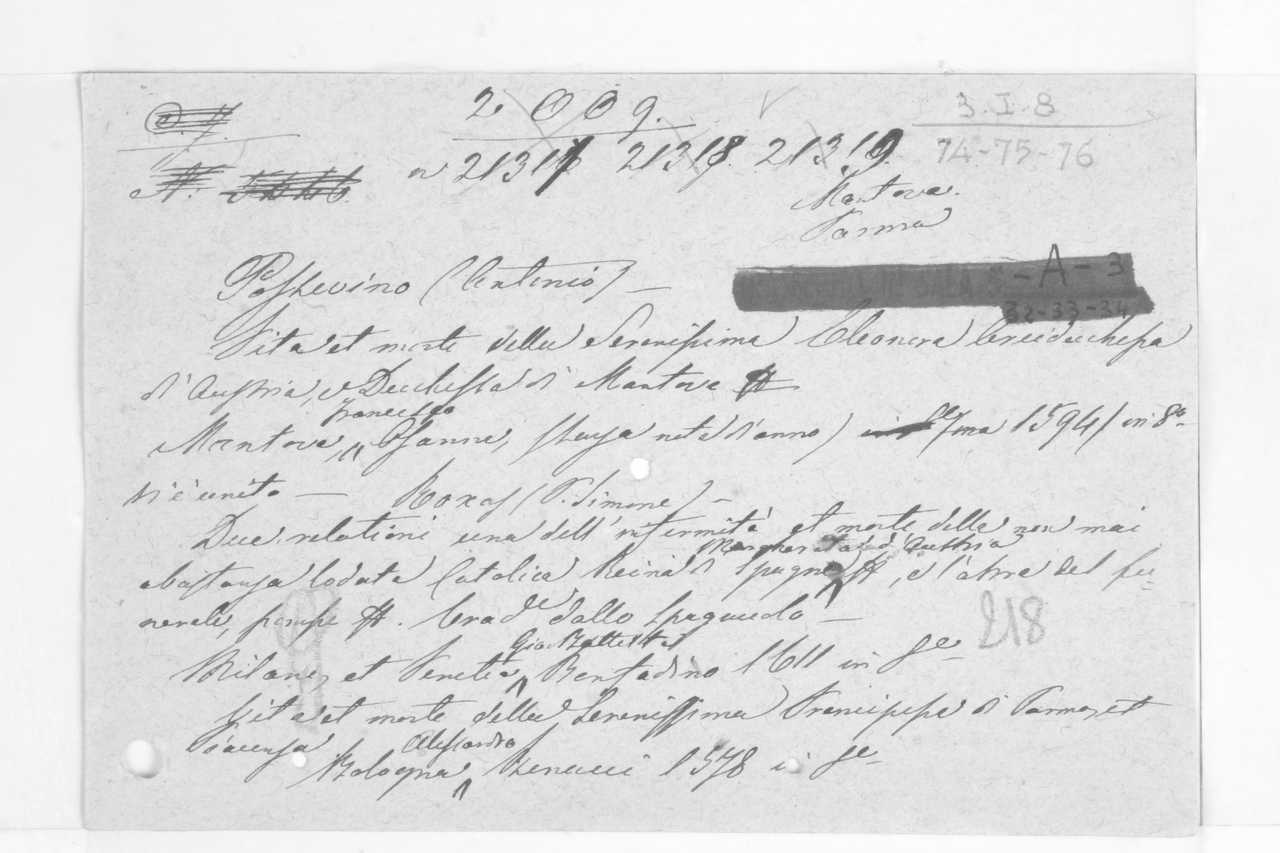 2009. 3.I.8
21317 21318 21319. 74-75-76
Mantova.
Parma
-A-3
Possevino (Antonio) — 32-33-34
Vita et morte della Serenissima Eleonora Arciduchessa
d'Austria, e Duchessa di Mantova
Mantova, Francesco Osanna, (senza nota d'anno) 1594) in 8°
Si è unito — Roxas (P. Simone) —
Due relationi una dell'infermità et morte della non mai
abastanza lodata Catolica Reina di Spagna Margharita d'Austria, e l'altra del fu-
nerale, pompe. Trad.e dallo Spagnuolo —
218
Milano, et Venetia, Gio: Battista Bonfadino 1611 in 8°
Vita et morte della Serenissima Principessa di Parma, et
Piacenza
Bologna, Alessandro Benacci 1578 in 8°